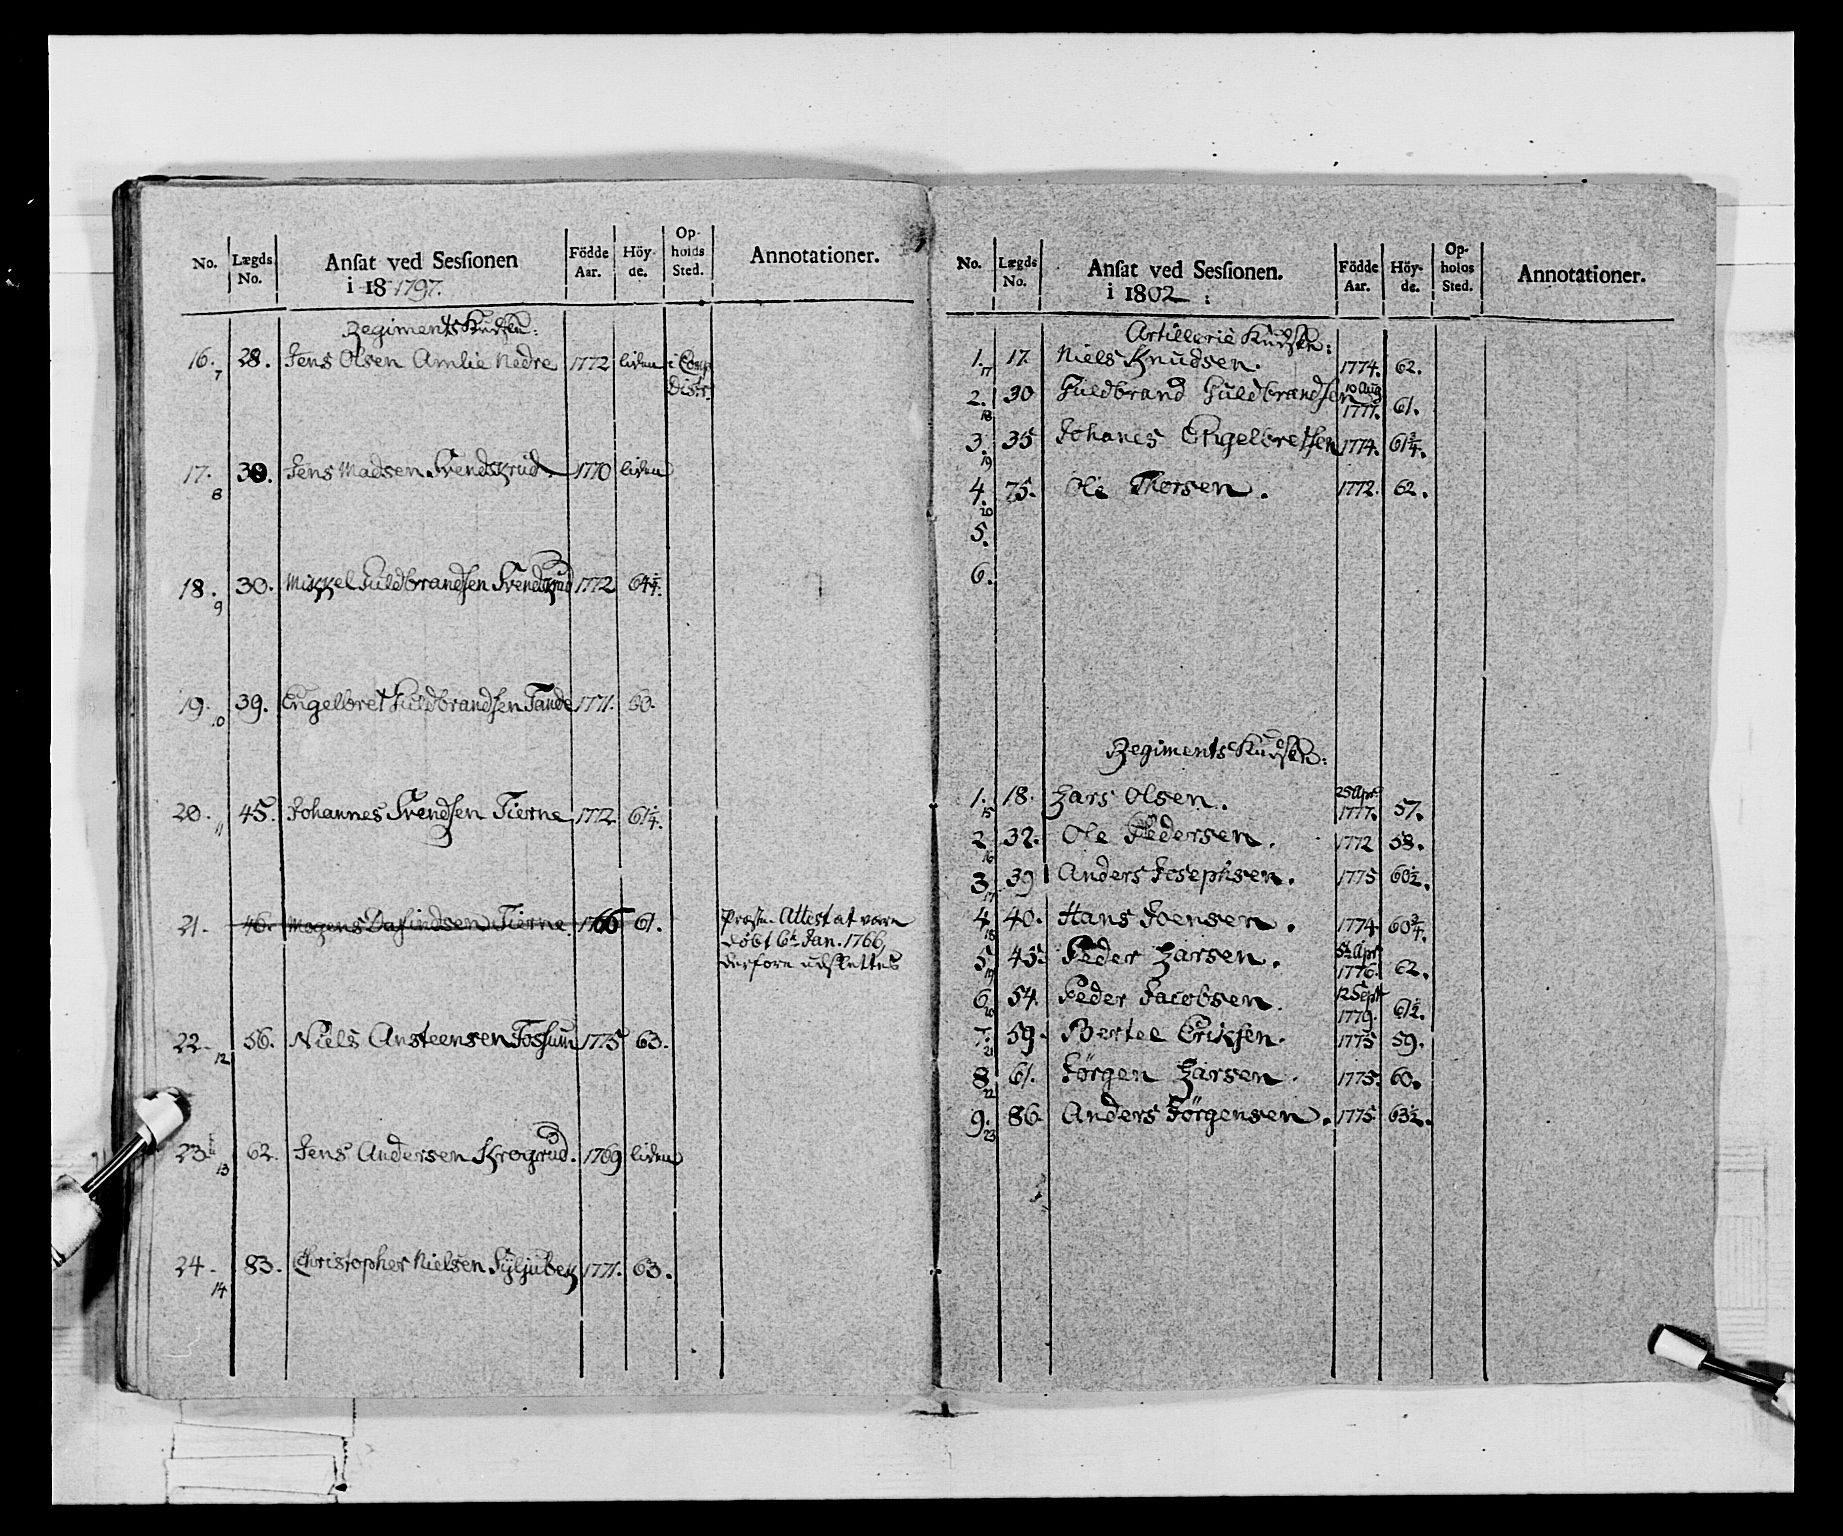 No. Lægds No. Ansat ved Sessionen i 18 1797. Födde Aar. Höyde. Opholds Sted. Annotationer.
Regiments Kudske:
16. 7 28. Jens Olsen Amlie Nedre 1772 liden i Comp
Distr.
17. 8 30. Jens Madsen Svendsrud 1770 liden
18. 9 30. Mikkel Guldbrandsen Svendsrud 1772 64 1/4.
19. 10 39. Engelbret Guldbrandsen Tande 1771. 60.
20. 11 45. Johannes Svendsen Tierne 1772 61 1/4.
21. 46. Mogens Dafindsen Tierne 1766 61. Præste Attest at være
döbt 6t Jan. 1766,
derfore udslettes
22. 12 56. Niels Ansteensen Fossum 1775 63.
23. 13 62. Jens Andersen Krogrud. 1769 liden
24. 14 83. Christopher Nielsen 1771. 63.
No. Lægds No. Ansat ved Sessionen. i 1802 : Födde Aar. Höyde. Opholds Sted. Annotationer.
Artillerie Kudske:
1. 17 17. Niels Knudsen. 1774. 62.
2. 18 30 Guldbrand Guldbrandsen 10 Aug 1777. 61.
3. 19 35 Johanes Engelbretsen 1774. 61 3/4.
4. 20 75. Ole Thorsen. 1772. 62.
5.
6.
Regiments Kudske:
1. 15 18. Lars Olsen. 25 Apr 1777. 57.
2 16 32. Ole Pedersen. 1772 58.
3 17 39 Anders Josephsen. 1775 60 1/2.
4 18 40. Hans Joensen. 1774 60 3/4.
5 19 45. Peder Larsen. 5t Apr 1776. 62.
6 20 54. Peder Jacobsen 12 Sept 1779. 61 1/2.
7. 21 59. Bertel Eriksen. 1775 59.
8 22 61. Jörgen Larsen. 1775. 60.
9. 23 86. Anders Jörgensen. 1775 63 1/2.